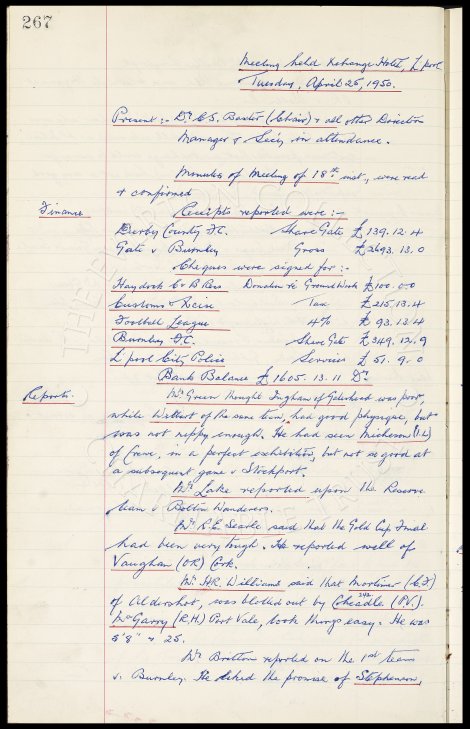 267
Meeting held Exchange Hotel, L'pool
Tuesday, April 25, 1950.
Present :- Dr. C.S. Baxter (Chair) & all other Directors
Manager & Sec'y in attendance.
Minutes of Meeting of 18th inst., were read
& confirmed
Finance
Receipts reported were :-
Derby County F.C. Share Gate £139.12.4
Gate v Burnley Gross £2693.13.0
Cheques were signed for :-
Haydock C & B Recs Donation re Ground Work £100.0.0
Customs & Excise Tax £215.13.4
Football League 4% £93.12.4
Burnley F.C. Share Gate £349.12.9
L'pool City Police Services £51.9.0
Bank Balance £1605.13.11 Dr.
Reports.
Mr Green thought Ingham of Gateshead was poor,
while Wilbert of the same team, had good physique, but
was not nippy enough. He had seen Micheson (I.L)
of Crewe, in a perfect exhibition, but not so good at
a subsequent game v Stockport.
Mr Lake reported upon the Reserve
team v Bolton Wanderers.
Mr R.E. Searle said that the Gold Cup Final
had been very tough. He reported well of
Vaughan (OR) Cork.
Mr. A.R. Williams said that Mortimer (C.F.)
of Aldershot, was blotted out by Cheadle (P.V.).
McGarry (R.H.) Port Vale, took things easy. He was
5'8" & 25.
Mr Britton reported on the 1st team
v. Burnley. He liked the promise of Stephenson,